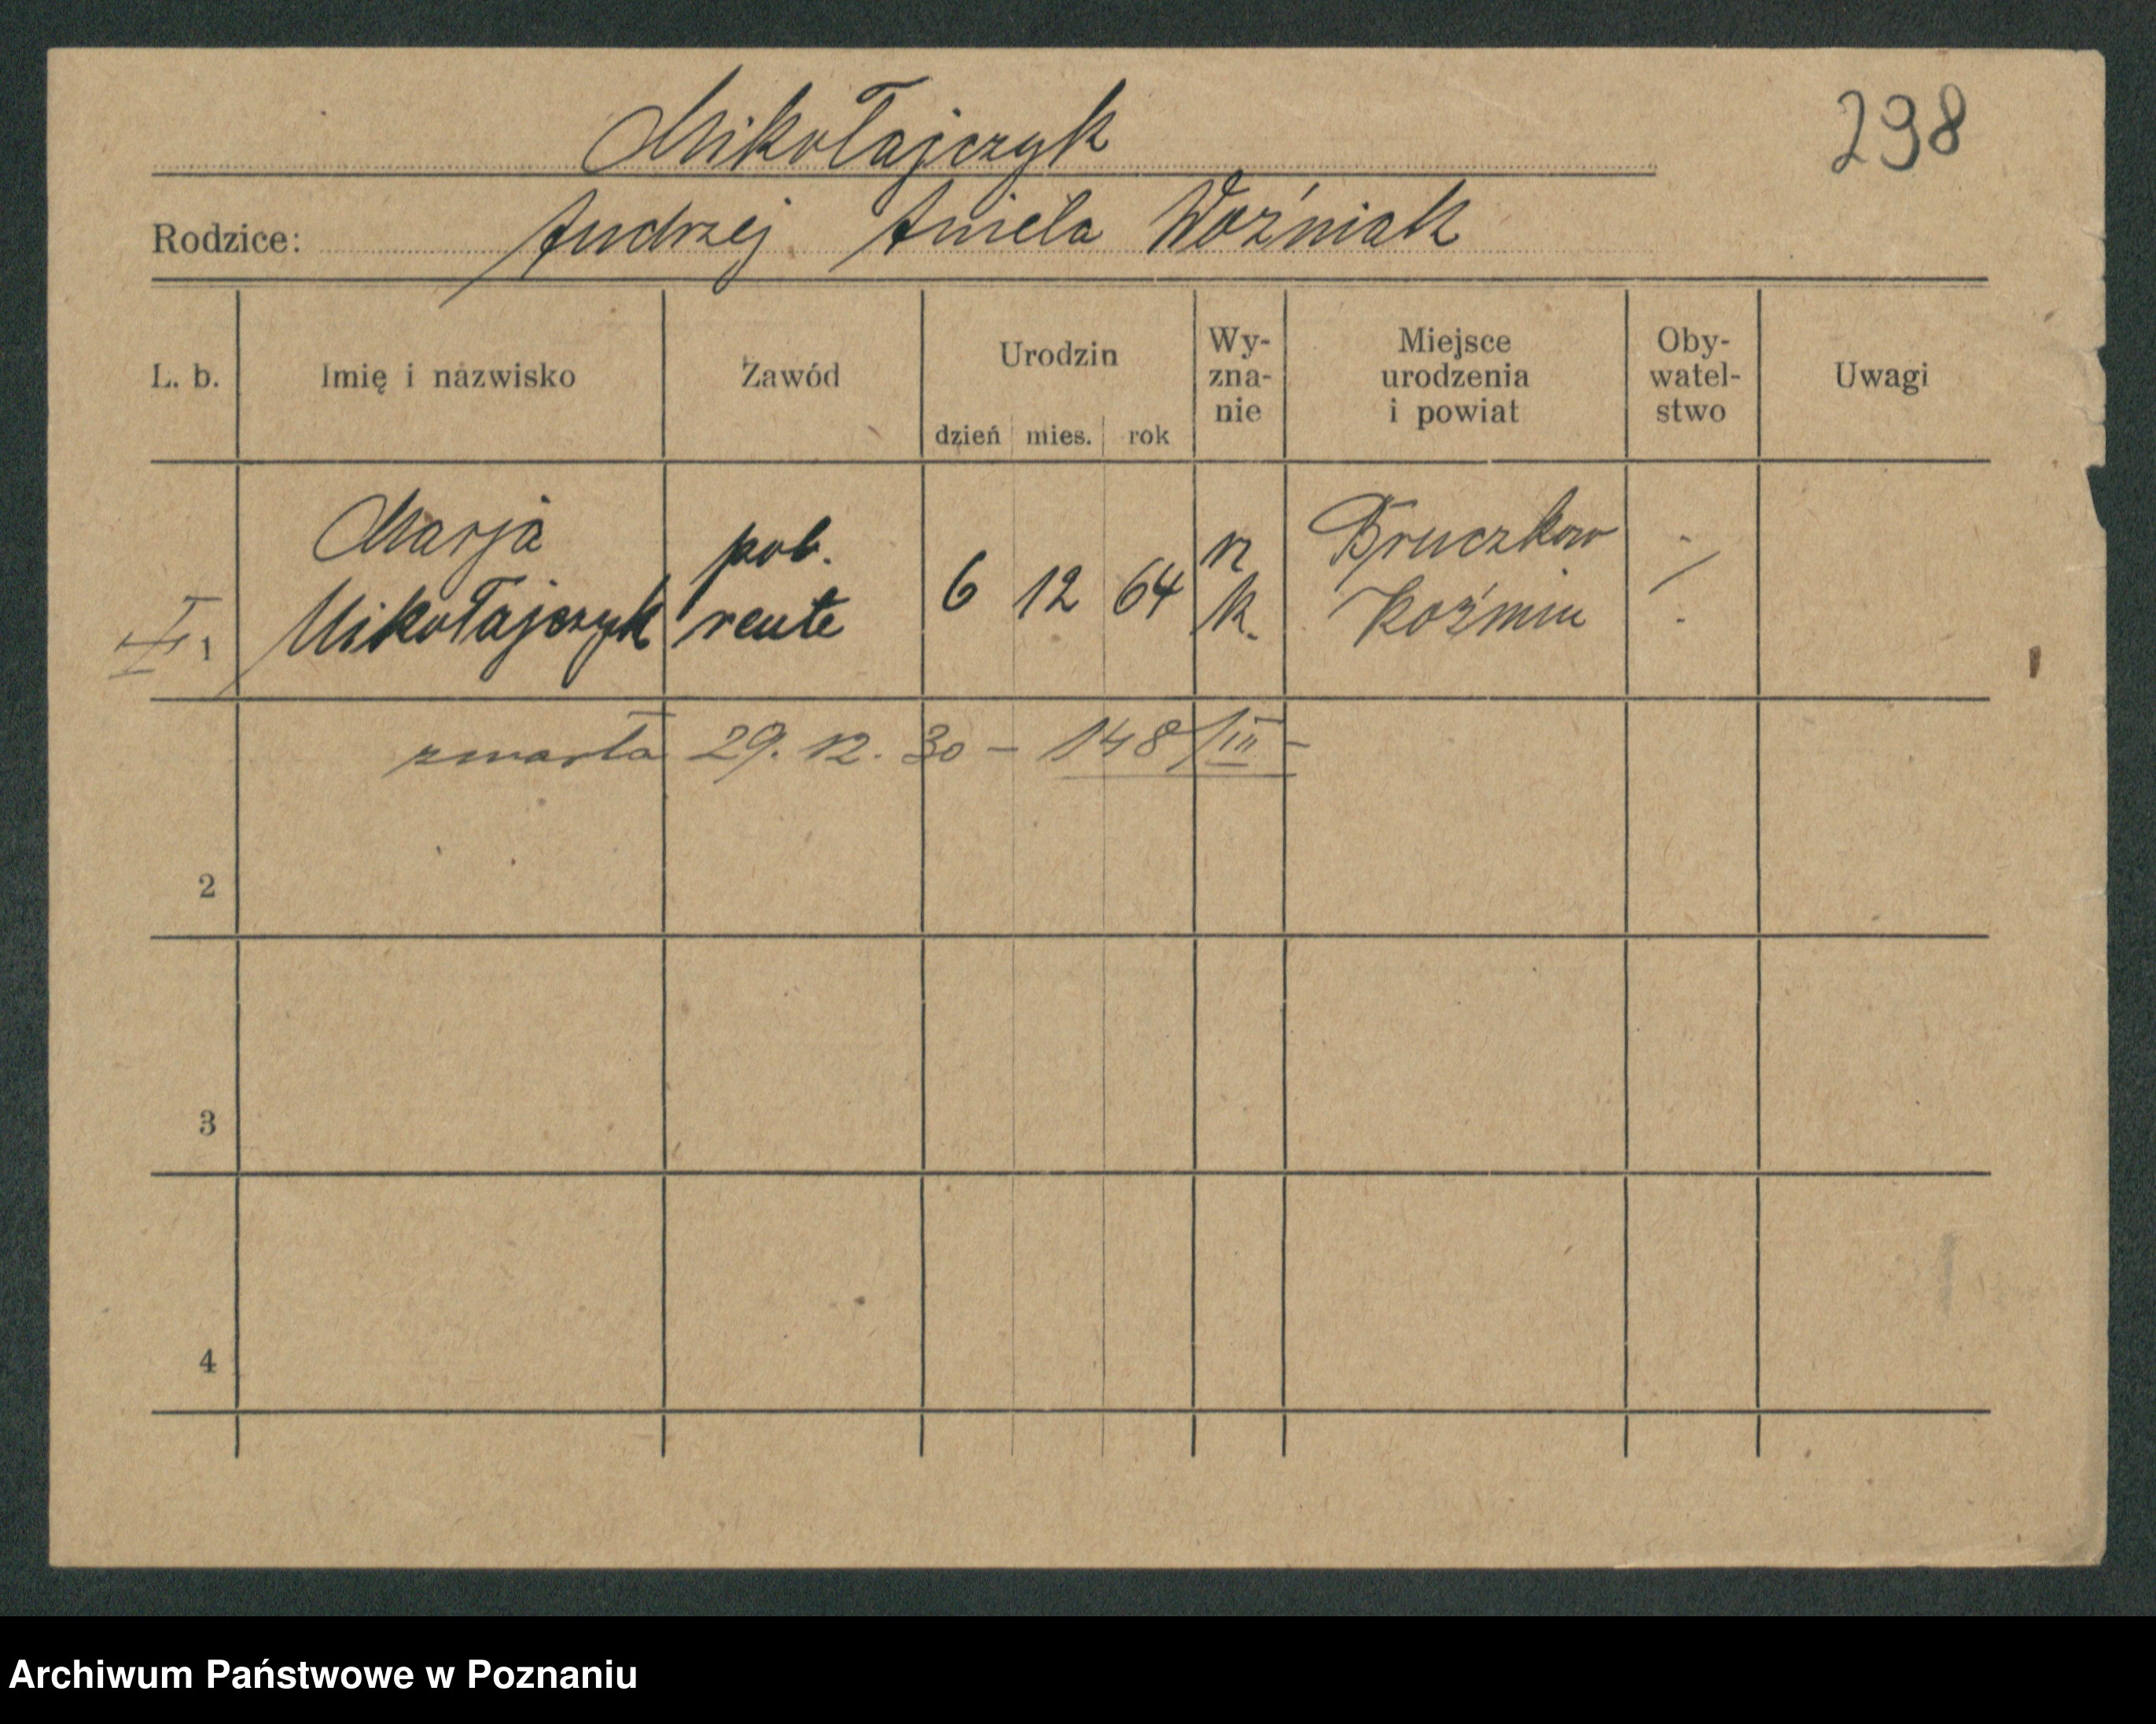 Mikołajczyk
298
Rodzice: Andrzej Aniela Woźniak
L. b.
Imię i nazwisko
Zawód
Urodzin
dzień mies. rok
Wy-
zna-
nie
Miejsce
urodzenia
i powiat
Oby-
watel-
stwo
Uwagi
1
Marja
Mikołajczyk
pob.
rente
6 12 64
rz
k.
Bruczkow
Koźmin
zmarła 29. 12. 30 – 148/III –
2
3
4
Archiwum Państwowe w Poznaniu